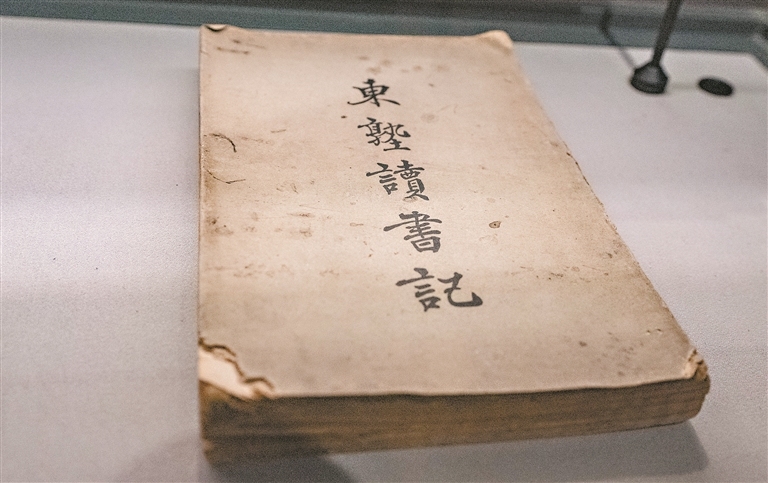 東塾讀書記